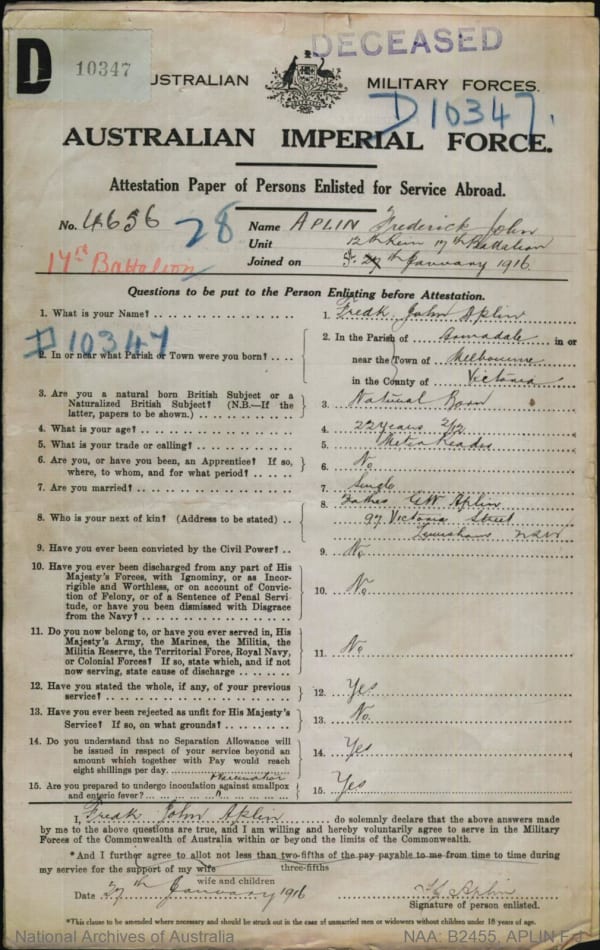 D 10347 DECEASED
AUSTRALIAN MILITARY FORCES.
D10347.
AUSTRALIAN IMPERIAL FORCE.
Attestation Paper of Persons Enlisted for Service Abroad.
No. 4656 28 Name APLIN Frederick John
Unit 12th Rein 17th Battalion
17th Battalion Joined on 27th January 1916
Questions to be put to the Person Enlisting before Attestation.
1. What is your Name? 1. Fredk John Aplin
D10347
2. In or near what Parish or Town were you born? 2. In the Parish of Armadale in or
near the Town of Melbourne
in the County of Victoria
3. Are you a natural born British Subject or a
Naturalized British Subject? (N.B.—If the
latter, papers to be shown.) 3. Natural Born
4. What is your age? 4. 22 years 2/12
5. What is your trade or calling? 5. Meter Reader
6. Are you, or have you been, an Apprentice? If so,
where, to whom, and for what period? 6. No
7. Are you married? 7. Single
8. Who is your next of kin? (Address to be stated) 8. Father Aplin
97 Victoria Street
Lewisham NSW
9. Have you ever been convicted by the Civil Power? 9. No
10. Have you ever been discharged from any part of His
Majesty's Forces, with Ignominy, or as Incor-
rigible and Worthless, or on account of Convic-
tion of Felony, or of a Sentence of Penal Servi-
tude, or have you been dismissed with Disgrace
from the Navy? 10. No
11. Do you now belong to, or have you ever served in, His
Majesty's Army, the Marines, the Militia, the
Militia Reserve, the Territorial Force, Royal Navy,
or Colonial Forces? If so, state which, and if not
now serving, state cause of discharge 11. No
12. Have you stated the whole, if any, of your previous
service? 12. Yes
13. Have you ever been rejected as unfit for His Majesty's
Service? If so, on what grounds? 13. No
14. Do you understand that no Separation Allowance will
be issued in respect of your service beyond an
amount which together with Pay would reach
eight shillings per day. 14. Yes
15. Are you prepared to undergo inoculation against smallpox
and enteric fever? 15. Yes
I, Fredk John Aplin do solemnly declare that the above answers made
by me to the above questions are true, and I am willing and hereby voluntarily agree to serve in the Military
Forces of the Commonwealth of Australia within or beyond the limits of the Commonwealth.
*And I further agree to allot not less than two-fifths of the pay payable to me from time to time during
three-fifths
my service for the support of my wife
wife and children
Date 27th January 1916 Aplin
Signature of person enlisted.
*This clause to be amended where necessary and should be struck out in the case of unmarried men or widowers without children under 18 years of age.
National Archives of Australia NAA: B2455, APLIN F J